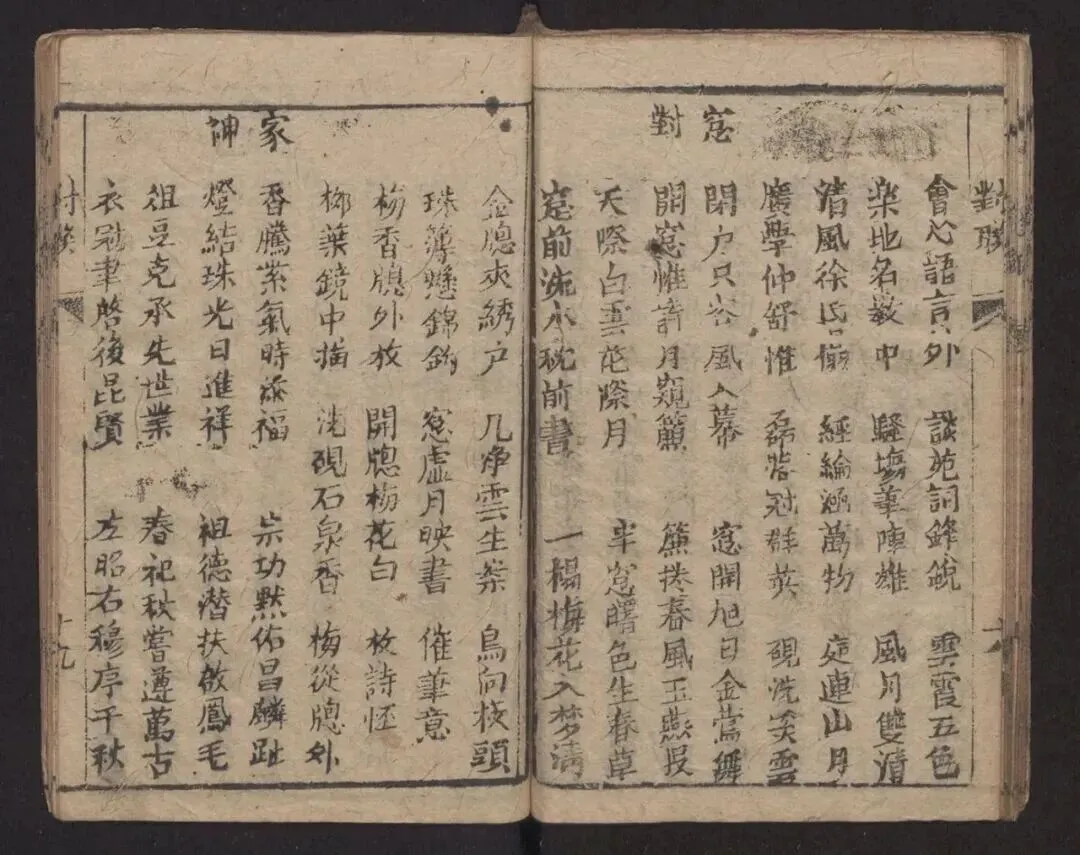 對聯
會心語言外 談苑詞鋒銳 雲霞五色
樂地名教中 騷場筆陣雄 風月雙清
清風徐氏 經綸涵萬物 連山月
廣學仲舒惟 磊落冠群英 硯洗雲
窓對
閉户只容風入幕 窓開旭日金鶯舞
開窓惟許月窺簾 簾捲春風玉燕投
天際白雲花際月 半窓曙色生春草
窓前流水枕前書 一榻梅花入梦清
金牕夾綉户 几净雲生案 鳥向枝頭
珠簿懸錦鈎 窓虛月映書 催筆意
梅香牕外放 開牕梅花白 枚詩怪
柳葉鏡中描 洗硯石泉香 梅從牕外
家神
香騰紫氣時添福 宗功默佑昌麟趾
燈結珠光日進祥 祖德潛扶啟鳳毛
俎豆克承先世業 春祀秋嘗遵萬古
衣冠聿啓後昆賢 左昭右穆序千秋
十九